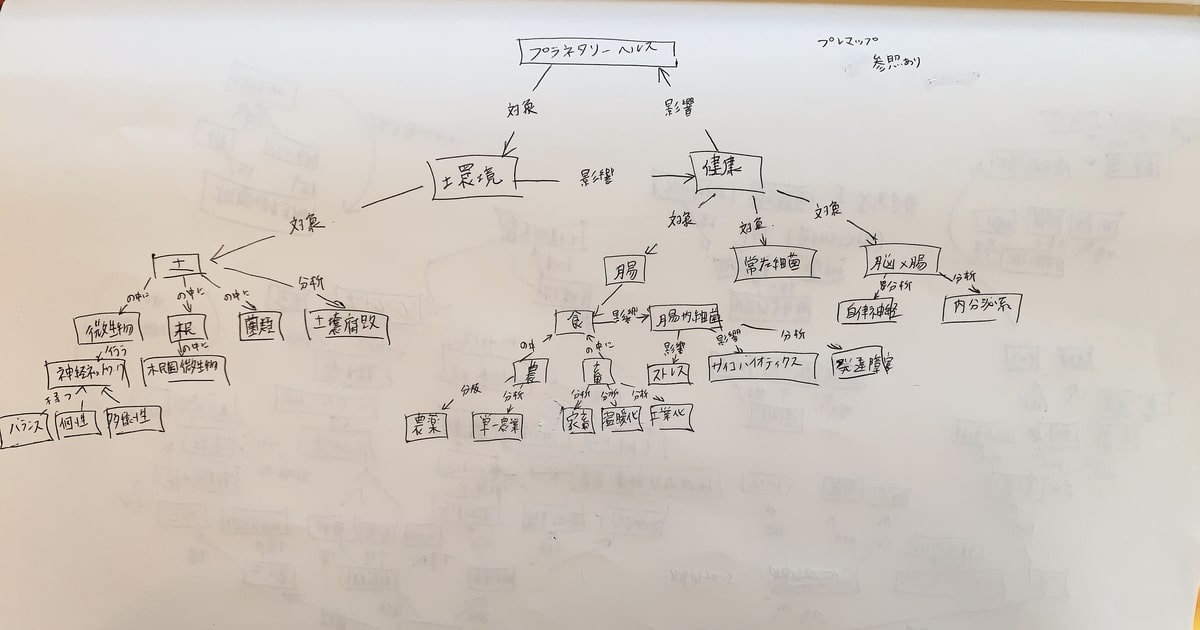 プレマップ
参照あり
プラネタリーヘルス
対象
影響
土環境
影響
健康
対象
対象
対象
対象
土
腸
常在細菌
脳×腸
の中に
の中に
の中に
分析
分析
微生物
根
菌類
土壌腐敗
食
影響
腸内細菌
自律神経
内分泌系
行う
の中に
の中に
影響
影響
分析
神経ネットワーク
根圏微生物
農
畜
ストレス
サイコバイオティクス
発達障害
持つ
分析
分析
分析
分析
バランス
個性
多様性
農薬
単一農業
家畜
温暖化
工業化